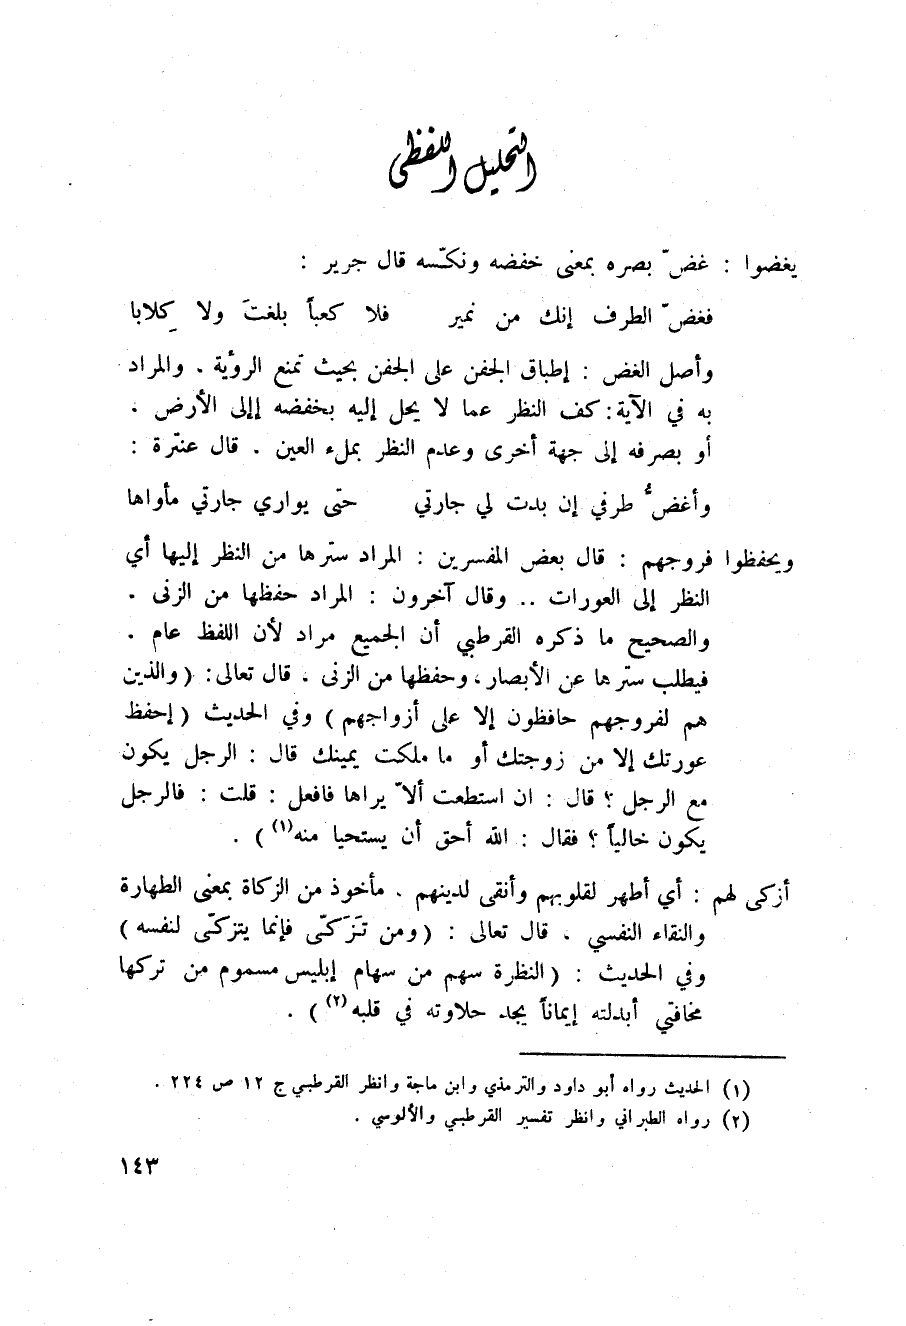 التحليل اللفظي
يغضوا : غضّ بصره بمعنى خفضه ونكّسه قال جرير :
فغضّ الطرف إنك من نمير فلا كعباً بلغتَ ولا كِلابا
وأصل الغض : إطباق الجفن على الجفن بحيث تمنع الرؤية . والمراد
به في الآية : كف النظر عما لا يحل إليه بخفضه إالى الأرض .
أو بصرفه إلى جهة أخرى وعدم النظر بملء العين . قال عنترة :
وأغضُّ طرفي إن بدت لي جارتي حتى يواري جارتي مأواها
ويحفظوا فروجهم : قال بعض المفسرين : المراد سترها من النظر إليها أي
النظر إلى العورات .. وقال آخرون : المراد حفظها من الزنى .
والصحيح ما ذكره القرطبي أن الجميع مراد لأن اللفظ عام .
فيطلب سترها عن الأبصار ، وحفظها من الزنى . قال تعالى : ( والذين
هم لفروجهم حافظون إلا على أزواجهم ) وفي الحديث ( إحفظ
عورتك إلا من زوجتك أو ما ملكت يمينك قال : الرجل يكون
مع الرجل ؟ قال : ان استطعت ألاّ يراها فافعل : قلت : فالرجل
يكون خالياً ؟ فقال : الله أحق أن يستحيا منه(١) ) .
أزكى لهم : أي أطهر لقلوبهم وأنقى لدينهم . مأخوذ من الزكاة بمعنى الطهارة
والنقاء النفسي . قال تعالى : ( ومن تَزَكّى فإنما يتزكّى لنفسه )
وفي الحديث : ( النظرة سهم من سهام إبليس مسموم من تركها
مخافتي أبدلته إيماناً يجد حلاوته في قلبه(٢) ) .
(١) الحديث رواه أبو داود والترمذي وابن ماجة وانظر القرطبي ج ١٢ ص ٢٢٤ .
(٢) رواه الطبراني وانظر تفسير القرطبي والألوسي .
١٤٣